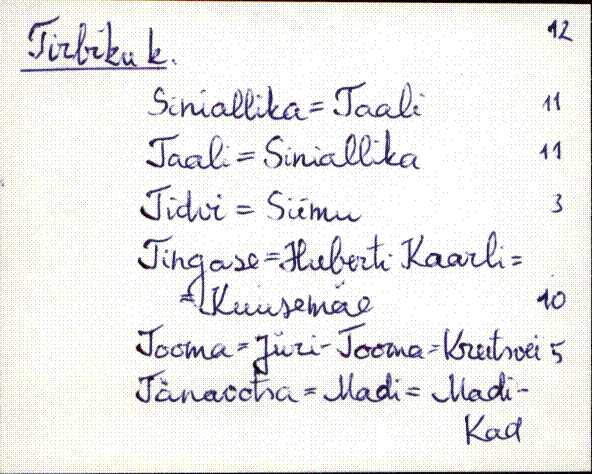 Tirbiku k. 12
Siniallika = Taali 11
Taali = Siniallika 11
Tidvi = Siimu 3
Tingase = Huberti Kaarli =
= Kuusemäe 10
Tooma = Jüri-Tooma = Kreitsvei 5
Tänavotsa = Madi = Madi-
Kad